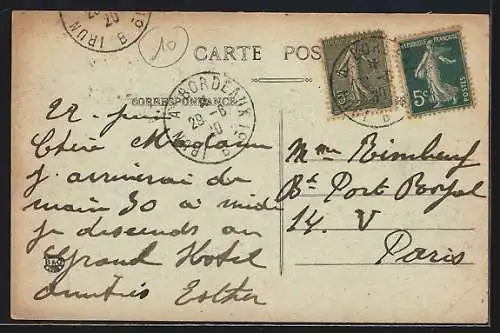 29 6
20
IRUN
10
CARTE POS
CORRESPONDANCE
BORDEAUX
29-6
20
IRUN
REPUBLIQUE FRANÇAISE
5c
POSTES
22 juin
Chère Madame
j arriverai de
main 30 a midi
je descends au
Grand Hotel
amitiés Esther
Mme
Bd Port Royal
14. V
Paris